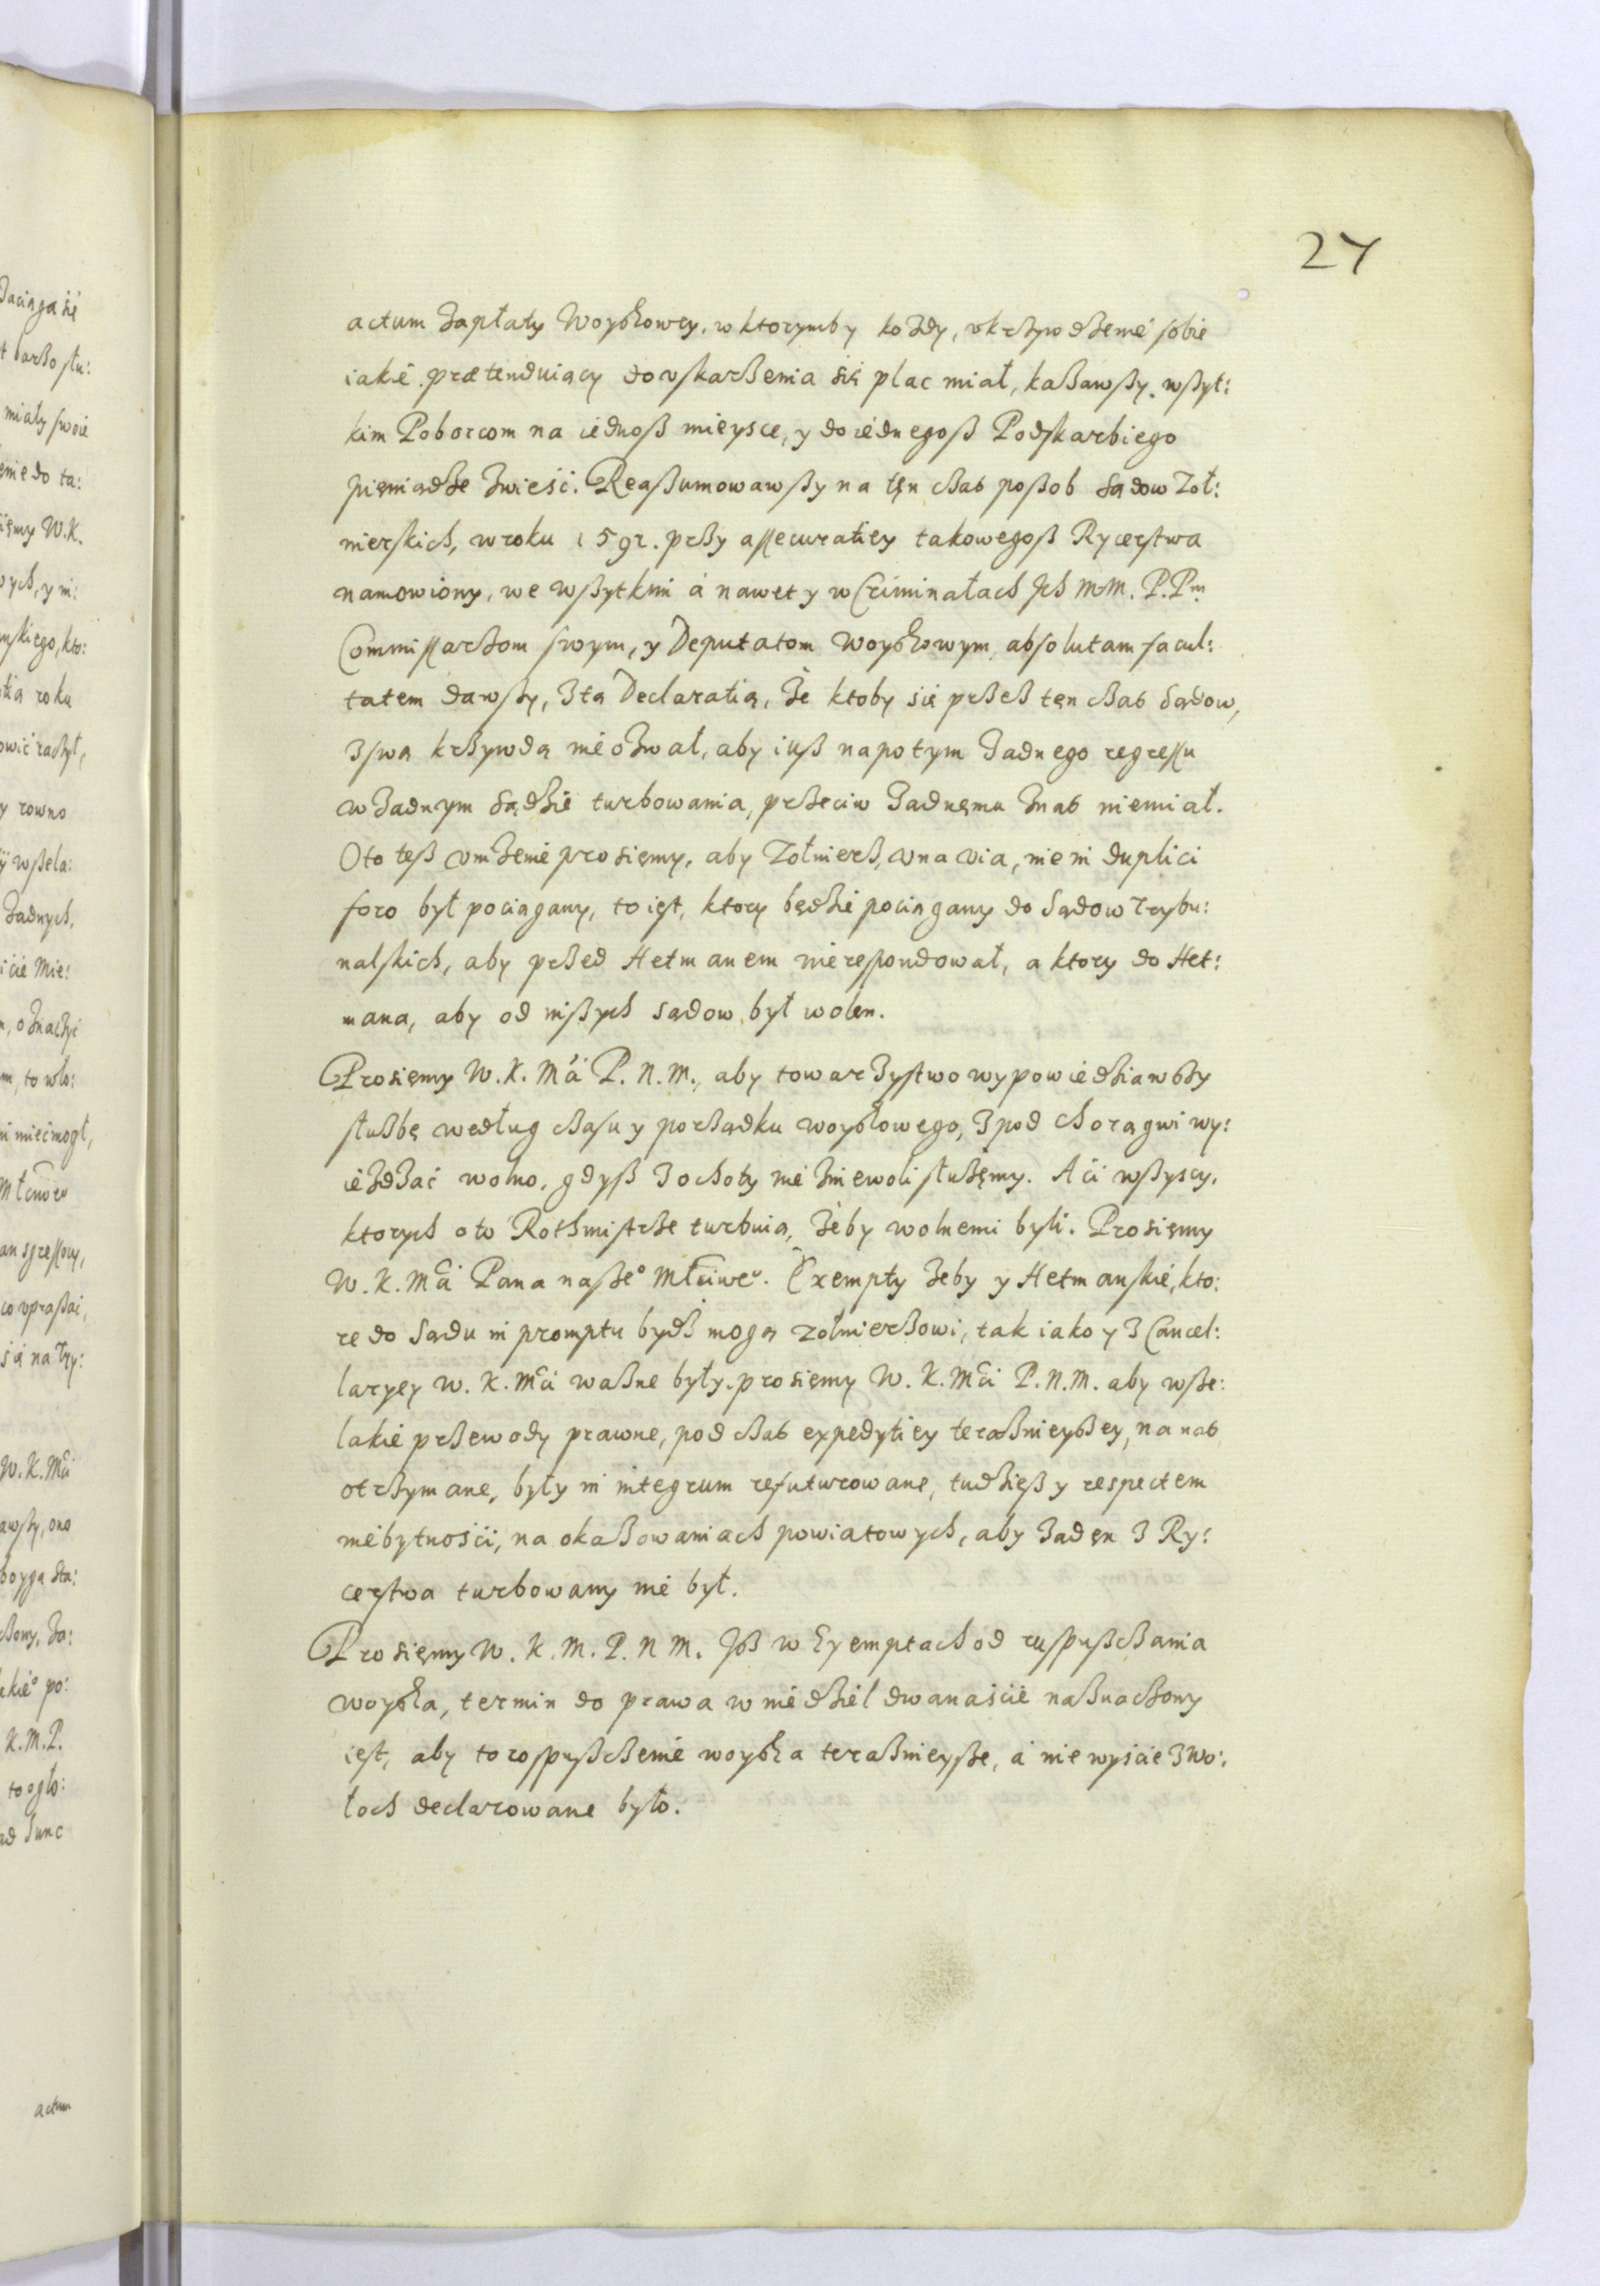 27
actum Zapłaty Woyskowey, w ktorymby kożdy, vkrzywdzenié sobie
iakié prætenduiący do vskarzenia się plac miał, kazawszy wszyt:
kim Poborcom na iednosz mieysce, y do iédnegosz Podskarbiego
pieniądze zwieść. Reassumowawszy na tęn czas posob Sądow Zoł:
nierskich, w roku 1591. przy assecuratiey takowegosz Rycerstwa
namowiony, we wszytkim á nawet y w Criminałach Ich MM. P. Pm
Commissarzom swym, y Deputatom Woyskowym, absolutam facul:
tatem dawszy, z tą Declaratią, że ktoby się przez tęn czas Sądow,
z swą krzywdą nié ozwał, aby iusz napotym żadnego regressu
w żadnym Sądzié turbowania, przeciw żadnęmu znas niemiał.
O to tesz vniżenié prosięmy, aby Zołnierz, vna via, nie in duplici
foro był pociągany, to iest, ktory będzié pociągany do Sądow Trybu:
nalskich, aby przed Hetmanem nierespondował, a ktory do Het:
mana, aby od inszych sądow był wolen.
Prosięmy W. K. Mći P. N. M., aby towarzystwo wypowiédziawszy
służbę według czasu y porządku woyskowego, z pod chorągwi wy:
iéżdżać wolno, gdysz z ochoty nié zniewoli służęmy. A ci wszyscy,
ktorych o to Rothmistrze turbuią, żéby wolnemi byli. Prosięmy
W. K. Mći Pana naszeo Młćiweo. Exempty żeby y Hetmanskié, kto:
re do Sądu in promptu bydź mogą zołnierzowi, tak iako y z Cancel:
laryey W. K. Mći ważne były. prosięmy W. K. Mći P. N. M. aby wsze:
lakié przewody prawne, pod czas expedytiey teraznieyszey, na nas
otrzymane, były in integrum refuturowane, tudziesz y respectem
niébytności, na okazowaniach powiatowych, aby żadęn z Ry:
cerstwa turbowany nié był.
Prosięmy W. K. M. P. N M. Isz w Exemptach od ruspuszczania
woyska, termin do prawa w niédziél dwanaście naznaczony
iest, aby to rospuszczenié woyska teraznieysze, á nie wyiscie z Wo:
łoch declarowane było.
actum